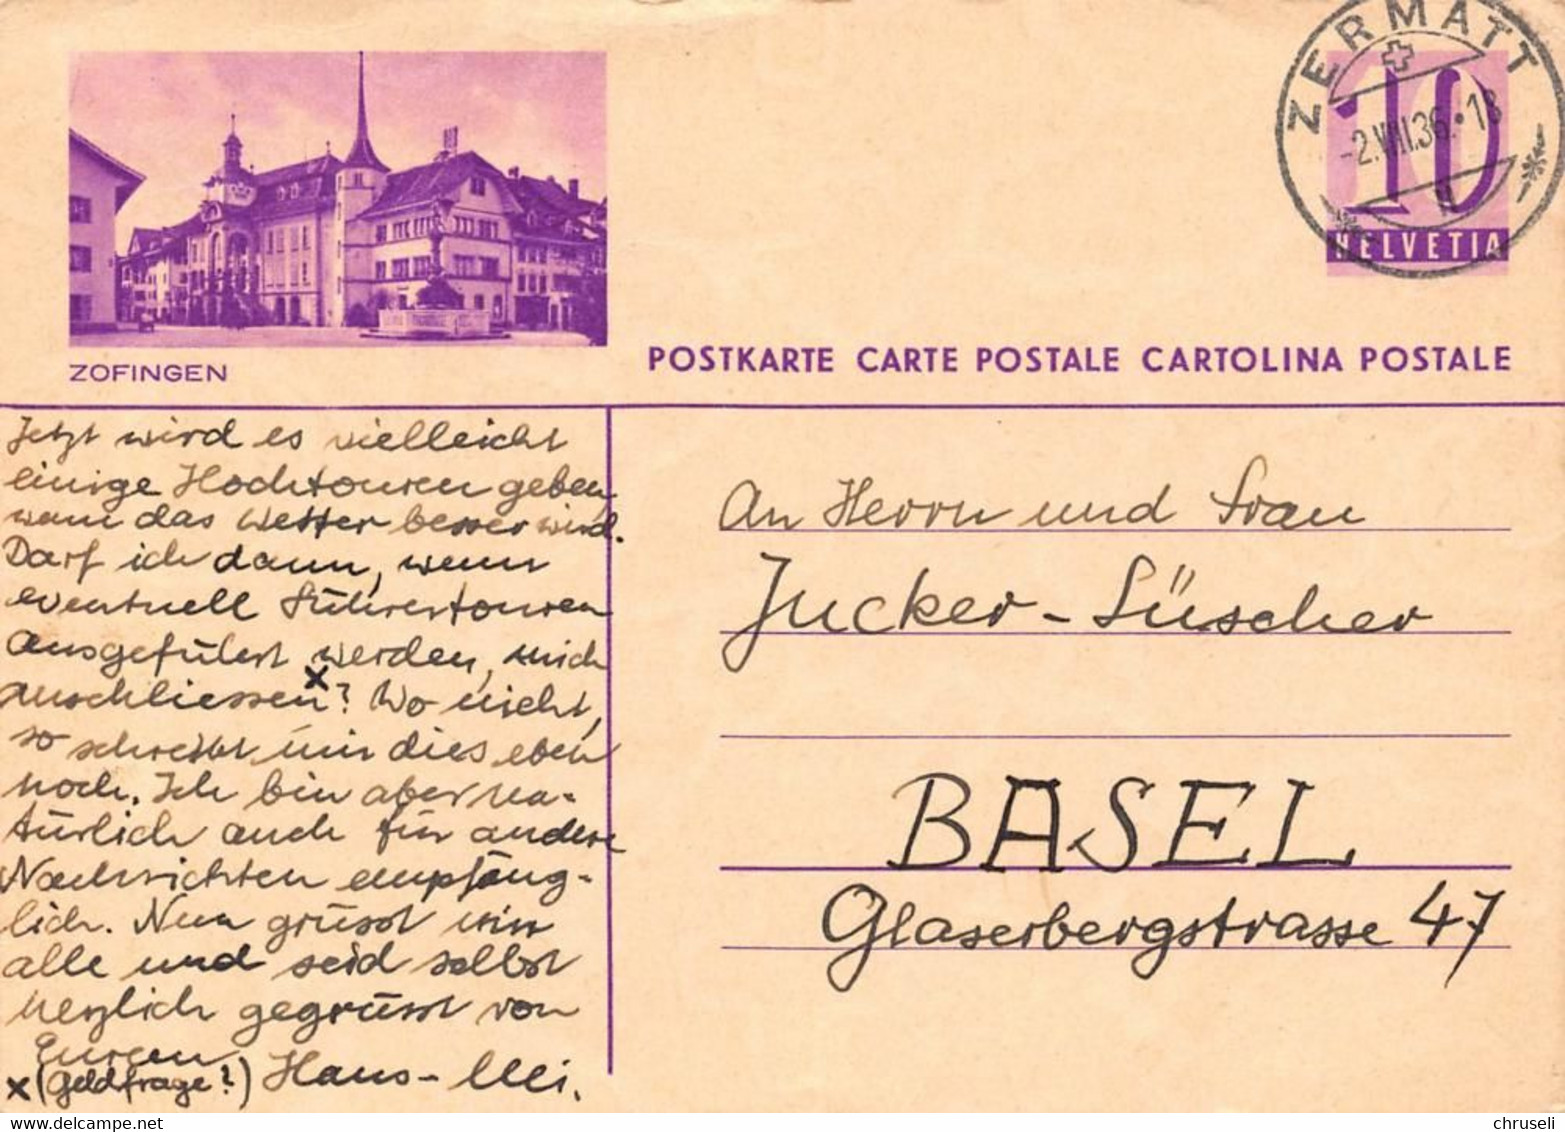 ZERMATT
-2.VIII.36.-18
10
HELVETIA
ZOFINGEN
POSTKARTE CARTE POSTALE CARTOLINA POSTALE
Jetzt wird es vielleicht
einige Hochtouren geben,
wenn das Wetter besser wird.
Darf ich dann, wenn
eventuell Führertouren
ausgeführt werden, mich
anschliessen x? Wo nicht,
so schreibt mir dies eben
noch. Ich bin aber na-
türlich auch für andere
Nachrichten empfäng-
lich. Nun grüsst mir
alle und seid selbst
herzlich gegrüsst von
Eurem
x (Geldfrage?) Hans-Ueli.
An Herrn und Frau
Jucker-Lüscher
BASEL
Glaserbergstrasse 47
www.delcampe.net
chruseli